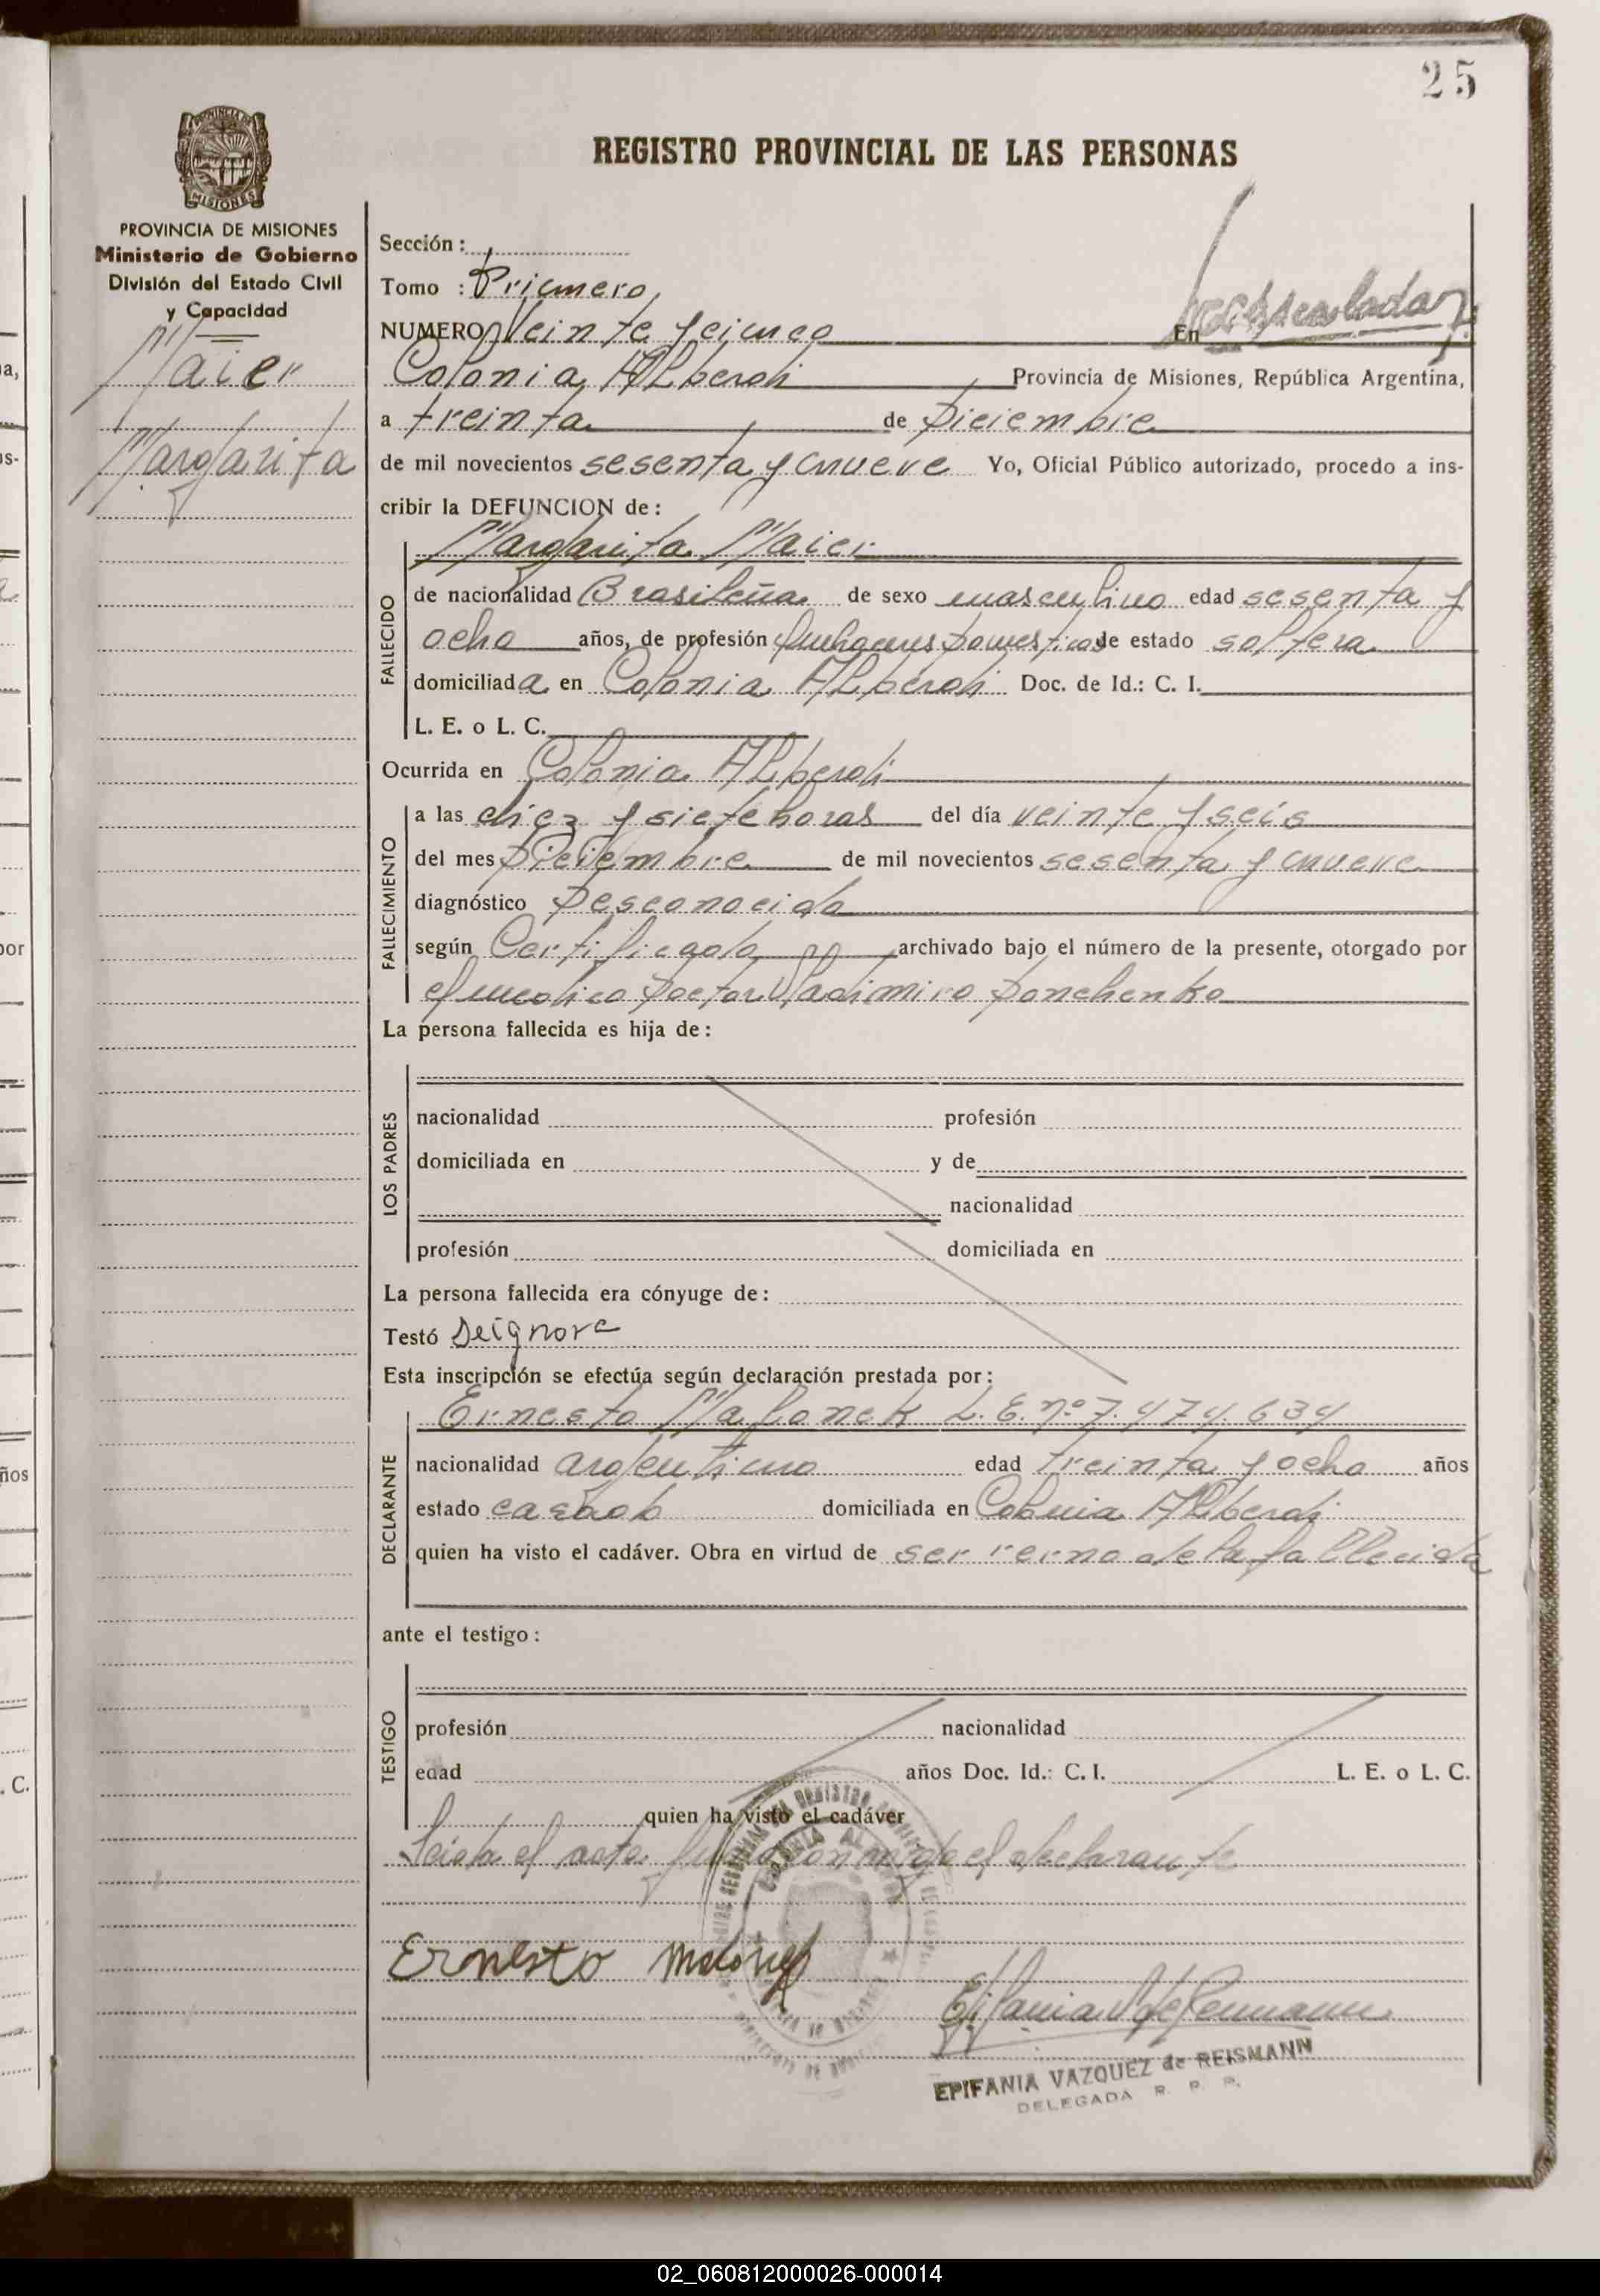 25
PROVINCIA DE
MISIONES
REGISTRO PROVINCIAL DE LAS PERSONAS
PROVINCIA DE MISIONES
Ministerio de Gobierno
División del Estado Civil
y Capacidad
Maier
Margarita
Sección:
Tomo : Primero
NUMERO Veinte y cinco En
Colonia Alberdi Provincia de Misiones, República Argentina,
a treinta de Diciembre
de mil novecientos sesenta y nueve Yo, Oficial Público autorizado, procedo a ins-
cribir la DEFUNCION de:
Margarita Maier
FALLECIDO
de nacionalidad Brasileña de sexo masculino edad sesenta y
ocho años, de profesión quehaceres Domesticos de estado soltera
domiciliada en Colonia Alberdi Doc. de Id.: C. I.
L. E. o L. C.
Ocurrida en Colonia Alberdi
FALLECIMIENTO
a las diez y siete horas del día veinte y seis
del mes Diciembre de mil novecientos sesenta y nueve
diagnóstico Desconocido
según Certificado archivado bajo el número de la presente, otorgado por
el medico Doctor Vladimiro Donchenko
La persona fallecida es hija de:
LOS PADRES
nacionalidad profesión
domiciliada en y de
nacionalidad
profesión domiciliada en
La persona fallecida era cónyuge de:
Testó Seignore
Esta inscripción se efectúa según declaración prestada por:
DECLARANTE
Ernesto Malonek L. E. nº 7.474.634
nacionalidad argentino edad treinta y ocho años
estado casado domiciliada en Colonia Alberdi
quien ha visto el cadáver. Obra en virtud de ser yerno de la fallecida
ante el testigo:
TESTIGO
profesión nacionalidad
edad años Doc. Id.: C. I. L. E. o L. C.
quien ha visto el cadáver
Leida el acta firma el declarante
Ernesto
EPIFANIA VAZQUEZ de REISMANN
DELEGADA R. P. P.
02_060812000026-000014